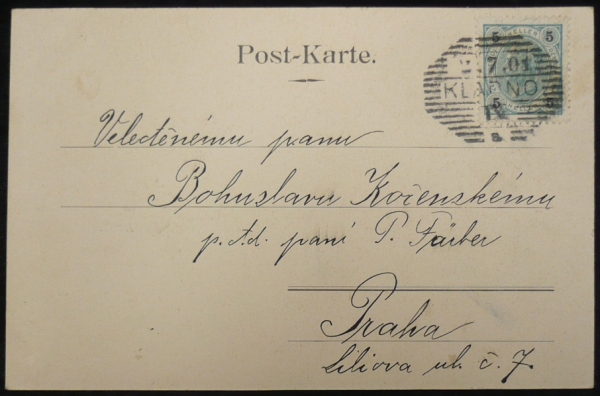 Post-Karte.
5 HELLER 5
7.01
KLADNO
5 5
Velectěnému panu
Bohuslavu Kočenskému
p. t. d. paní P. Färber
Praha
Liliova ul. č. 7.